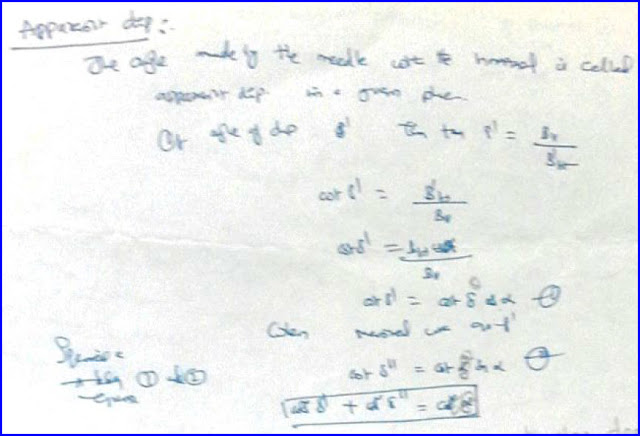 Apparent dip :-
The angle made by the needle with the horizontal is called
apparent dip in a given plane.
angle of dip δ' then tan δ' = Bv / B'H
cot δ' = B'H / Bv
cot δ' = BH cos α / Bv
cot δ' = cot δ cos α ①
When
cot δ'' = cot δ sin α ②
① ②
cot² δ' + cot² δ'' = cot² δ